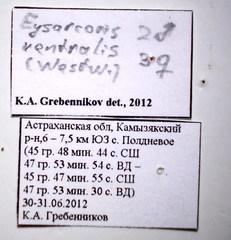 Eysarcoris 2♂
ventralis
(Westw.) 3♀
K.A. Grebennikov det., 2012
Астраханская обл, Камызякский
р-н,6 – 7,5 км ЮЗ с. Полдневое
(45 гр. 48 мин. 44 с. СШ
47 гр. 53 мин. 54 с. ВД –
45 гр. 47 мин. 55 с. СШ
47 гр. 53 мин. 30 с. ВД)
30-31.06.2012
К.А. Гребенников